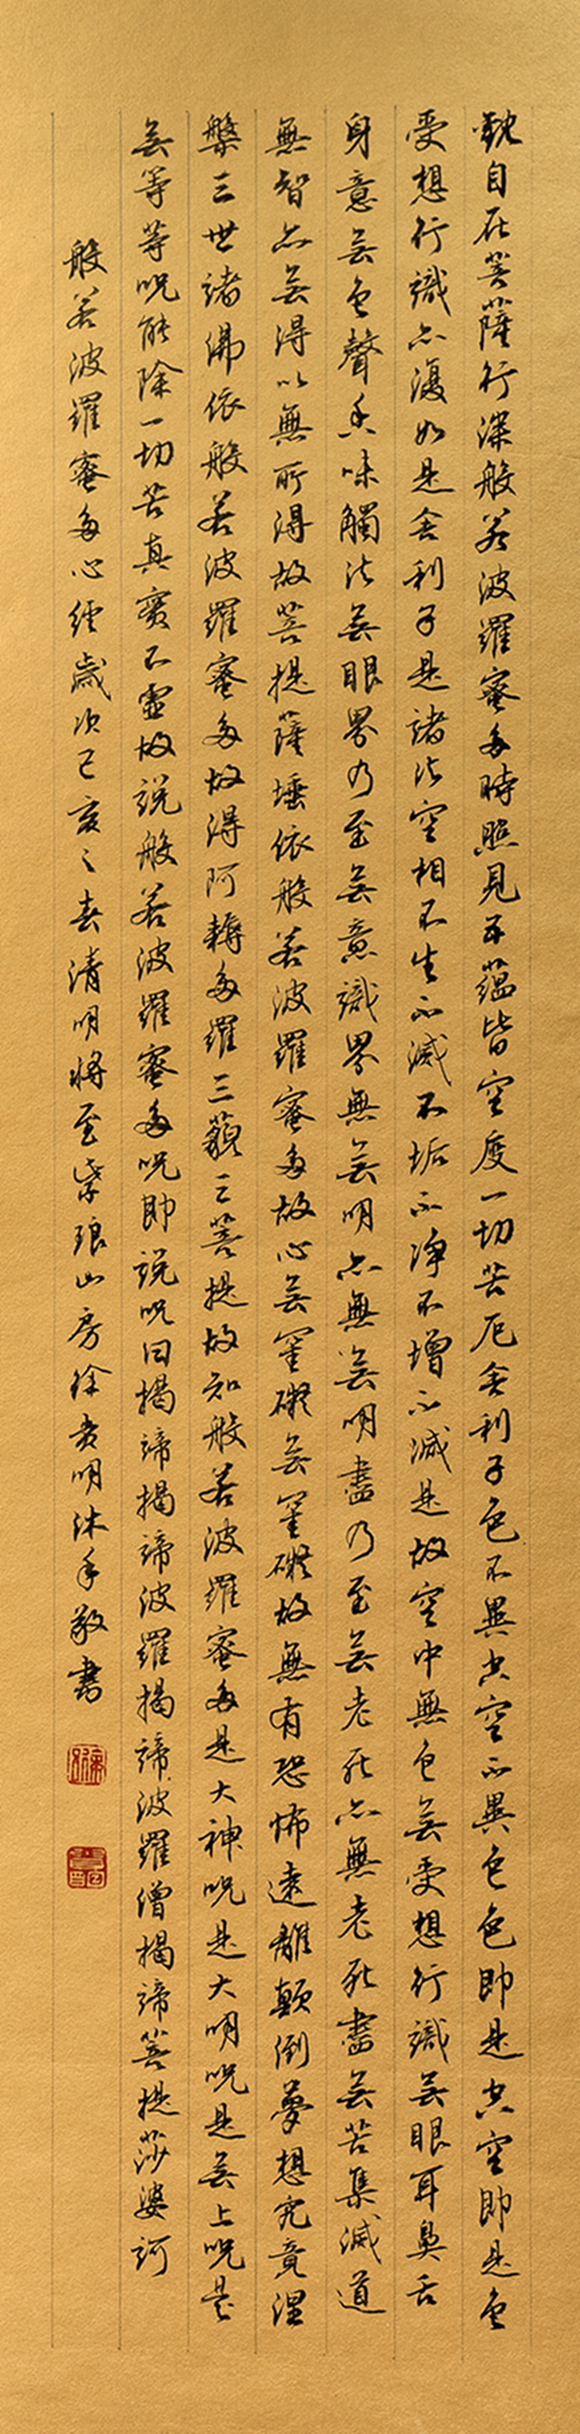 觀自在菩薩行深般若波羅蜜多時照見五蘊皆空度一切苦厄舍利子色不異空空不異色色即是空空即是色
受想行識亦復如是舍利子是諸法空相不生不滅不垢不淨不增不減是故空中無色無受想行識無眼耳鼻舌
身意無色聲香味觸法無眼界乃至無意識界無無明亦無無明盡乃至無老死亦無老死盡無苦集滅道
無智亦無得以無所得故菩提薩埵依般若波羅蜜多故心無罣礙無罣礙故無有恐怖遠離顛倒夢想究竟涅
槃三世諸佛依般若波羅蜜多故得阿耨多羅三藐三菩提故知般若波羅蜜多是大神咒是大明咒是無上咒是
無等等咒能除一切苦真實不虛故說般若波羅蜜多咒即說咒曰揭諦揭諦波羅揭諦波羅僧揭諦菩提莎婆訶
般若波羅蜜多心經歲次己亥之春清明將至紫琅山房徐貴明沐手敬書